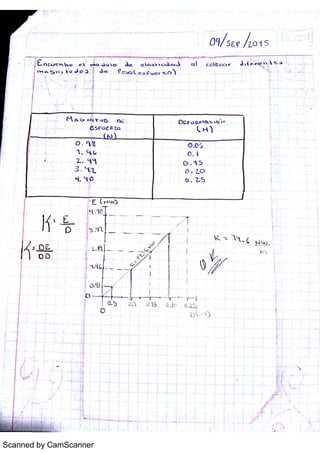 09/SEP/2015
Encuentre el modulo de elasticidad al colocar diferentes
magnitudes de Peso(esfuerzo)
MAGNITUD DE ESFUERZO (N)
DEFORMACIÓN (M)
0.98 0.05
1.96 0.1
2.94 0.15
3.92 0.20
4.90 0.25
E (NW)
4.90
3.92
2.94
1.96
0.98
0
K = E / D
K = DE / DD
K = 19.6 NW / m
0
0.5 0.1 0.15 0.20 0.25
Scanned by CamScanner